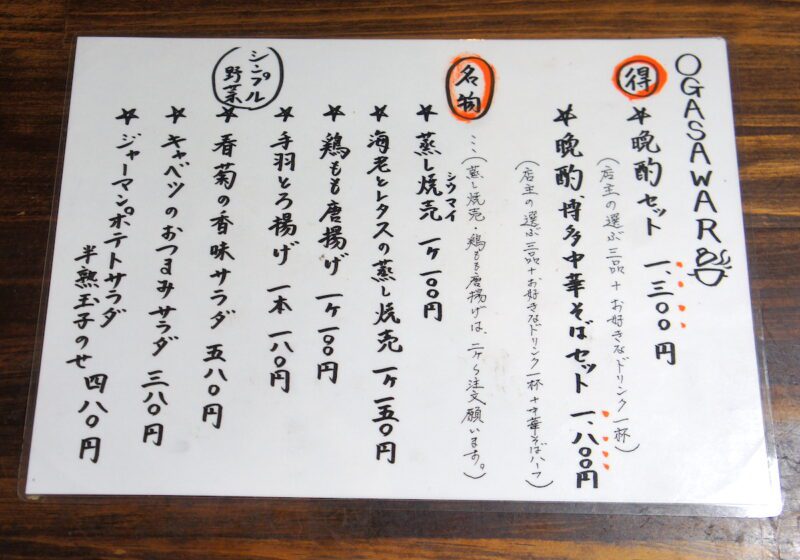 OGASAWARA
得
＊晩酌セット 一、三〇〇円
（店主の選ぶ三品＋お好きなドリンク一杯）
＊晩酌、博多中華そばセット 一、八〇〇円
（店主の選ぶ三品＋お好きなドリンク一杯＋中華そばハーフ）
名物
…（蒸し焼売・鶏もも唐揚げは、二ケから注文願います。）
＊蒸し焼売 一ケ一〇〇円
シウマイ
＊海老とレタスの蒸し焼売 一ケ一五〇円
＊鶏もも唐揚げ 一ケ一〇〇円
＊手羽とろ揚げ 一本一八〇円
シンプル
野菜
＊春菊の香味サラダ 五八〇円
＊キャベツのおつまみサラダ 三八〇円
＊ジャーマンポテトサラダ
半熟玉子のせ 四八〇円